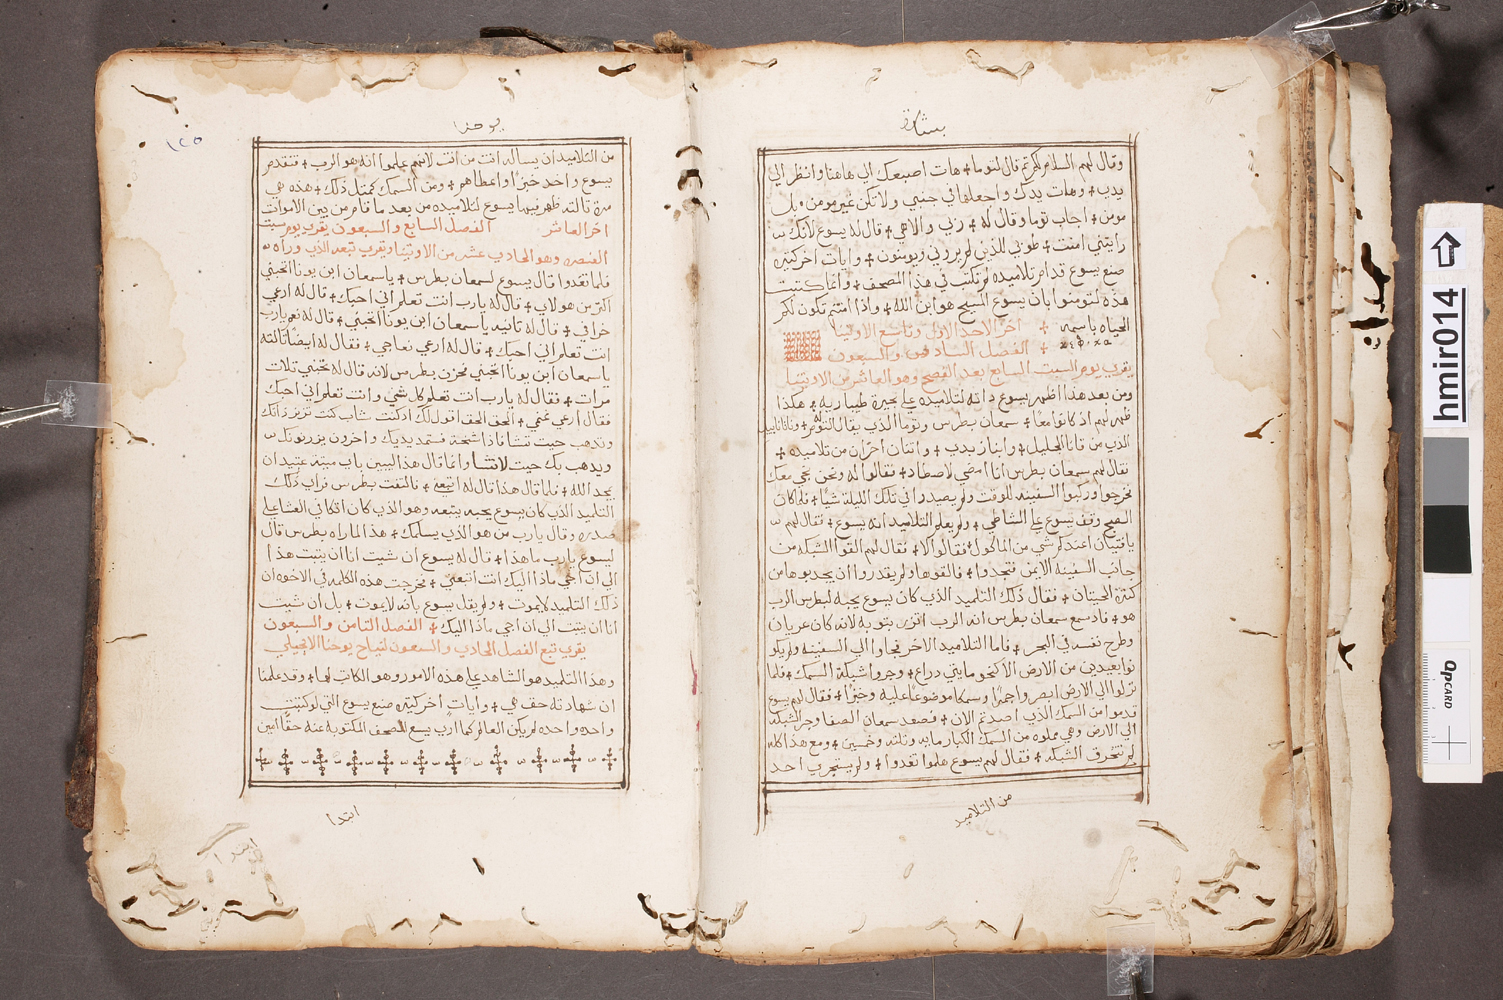 بشارة
وقال لهم السلام لكم ثم قال لتوما + هات اصبعك الي هاهنا وانظر الي
يدي + وهات يدك واجعلها في جنبي ولا تكن غير مومن بل
مومن + اجاب توما وقال له + ربي والاهي + قال له يسوع لانك
رايتني امنت + طوبي للذين لم يروني ويومنون + وايات اخر كثيره
صنع يسوع قدام تلاميده لم تكتب في هذا المصحف + وانما كتبت
هذه لتومنوا بان يسوع المسيح هو ابن الله + واذا امنتم تكون لكم
الحياه باسمه + اخر الاحد الاول وتاسع الاوتينا
+ الفصل السادس والسبعون
يقري يوم السبت السابع بعد الفصح وهو العاشر من الاوتينا
ومن بعد هذا اظهر يسوع داته لتلاميده علي بحيرة طيباريه + هكذا
ظهر لهم اذ كانوا معا + سمعان بطرس وتوما الذي يقال له التوم + وناتاناييل
الذي من قانا الجليل + وابنا زبدي + واتنان اخران من تلاميده +
فقال لهم سمعان بطرس انا امضي لاصطاد + فقالوا له ونحن نجي معك
فخرجوا وركبوا السفينه للوقت ولم يصيدوا في تلك الليلة شيا + فلما كان
الصبح وقف يسوع علي الشاطي + ولم يعلم التلاميد انه يسوع + فقال لهم
يافتيان اعندكم شي من الماكول + فقالوا لا + فقال لهم القوا الشبكه من
جانب السفينه الايمن فتجدوا + فالقوها ولم يقدروا ان يجدبوها من
كترة الحيتان + فقال ذلك التلميد الذي كان يسوع يحبه لبطرس الرب
هو + فاذ سمع سمعان بطرس انه الرب اتزر بتوبه لانه كان عريان
وطرح نفسه في البحر + فاما التلاميد الاخر فجاوا الي السفينه ولم يكو
نوا بعيدين من الارض الا نحو مايتي دراع + وجروا شبكة السمك + فلما
نزلوا الي الارض ابصروا جمرا وسمكا موضوعا عليه وخبزا + فقال لهم يسوع
قدموا من السمك الذي اصدتم الان + فصعد سمعان الصفا وجر الشبكه
الي الارض وهي مملوه من السمك الكبار مايه وتلته وخمسين + ومع هذا كله
لم تتخرق الشبكه + فقال لهم يسوع هلموا تغدوا + ولم يستجري احد
من التلاميد
يوحنا
١٢٥
من التلاميد ان يساله انت من انت لانهم علموا انه هو الرب + فتقدم
يسوع واخد خبزا واعطاهم + ومن السمك كمثل ذلك + هذه هي
مرة تالته ظهر فيها يسوع لتلاميده من بعد ما قام من بين الاموات
اخر العاشر الفصل السابع والسبعون يقري يوم سبت
العنصره وهو الحادي عشر من الاوتينا ويقري تبعد الذي وراه
فلما تغدوا قال يسوع لسمعان بطرس + ياسمعان ابن يونا اتحبني
اكتر من هولاي + قال له يارب انت تعلم اني احبك + قال له ارعي
خرافي + قال له تانيه ياسمعان ابن يونا اتحبني + قال له نعم يارب
انت تعلم اني احبك + قال له ارعي نعاجي + فقال له ايضا تالته
ياسمعان ابن يونا اتحبني فحزن بطرس لانه قال له تحبني تلات
مرات + فقال له يارب انت تعلم كل شي وانت تعلم اني احبك
فقال ارعي غنمي + الحق الحق اقول لك اذ كنت شاب كنت تزنر ذاتك
وتدهب حيت تشا فاذا شخت فستمد يديك واخرون يزرنونك
ويدهب بك حيت لا تشا وانما قال هذا ليبين باي ميتة عتيد ان
يمجد الله + فلما قال هذا قال له اتبعني + فالتفت بطرس فراي ذلك
التلميد الذي كان يسوع يحبه يتبعه وهو الذي كان اتكا في العشا علي
صدره وقال يارب من هو الذي يسلمك + هذا لما راه بطرس قال
ليسوع يارب ما هذا + قال له يسوع ان شيت انا ان يتبت هذا
الي ان اجي ماذا اليك انت اتبعني + فخرجت هذه الكلمه في الاخوه ان
ذلك التلميد لا يموت + ولم يقل يسوع بانه لا يموت + بل ان شيت
انا ان يتبت الي ان اجي ماذا اليك + الفصل التامن والسبعون
يقري تبع الفصل الحادي والسبعون لنياح يوحنا الانجيلي
وهذا التلميد هو الشاهد علي هذه الامور وهو الكاتب لها + وقد علمنا
ان شهادته حق هي + وايات اخر كثيره صنع يسوع التي لو كتبت
واحده واحده لم يكن العالم كما اري يسع للصحف المكتوبة عنه حقا امين
ابتدا